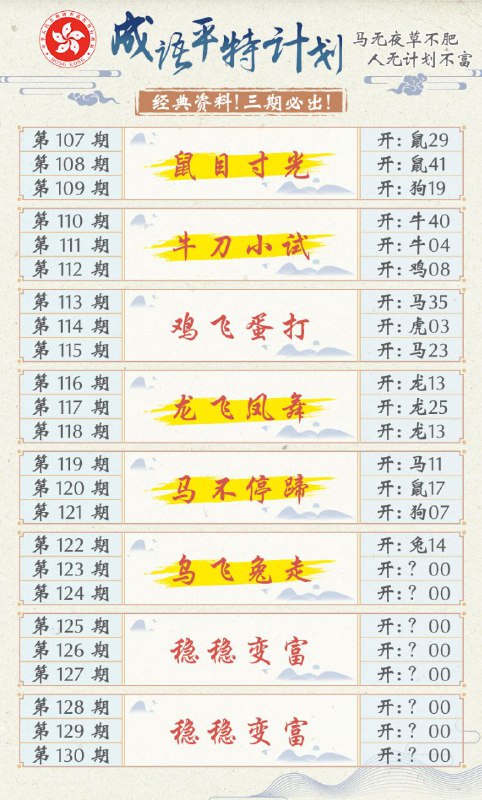 HONG KONG
成语平特计划
马无夜草不肥
人无计划不富
经典资料!三期必出!
第 107 期
第 108 期
第 109 期
鼠目寸光
开:鼠29
开:鼠41
开:狗19
第 110 期
第 111 期
第 112 期
牛刀小试
开:牛40
开:牛04
开:鸡08
第 113 期
第 114 期
第 115 期
鸡飞蛋打
开:马35
开:虎03
开:马23
第 116 期
第 117 期
第 118 期
龙飞凤舞
开:龙13
开:龙25
开:龙13
第 119 期
第 120 期
第 121 期
马不停蹄
开:马11
开:鼠17
开:狗07
第 122 期
第 123 期
第 124 期
乌飞兔走
开:兔14
开:? 00
开:? 00
第 125 期
第 126 期
第 127 期
稳稳变富
开:? 00
开:? 00
开:? 00
第 128 期
第 129 期
第 130 期
稳稳变富
开:? 00
开:? 00
开:? 00